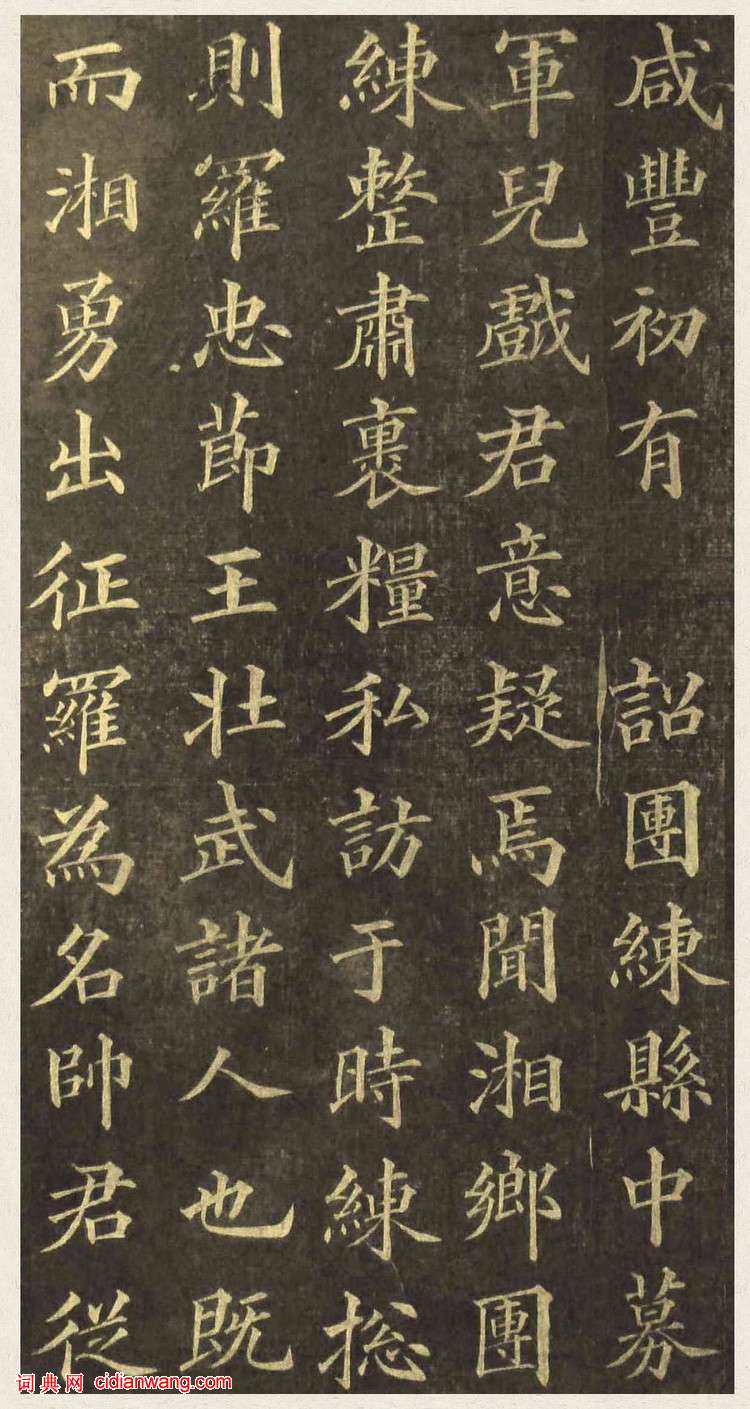 咸豐初有 詔團練縣中募
軍兒戲君意疑焉聞湘鄉團
練整肅裹糧私訪于時練捴
則羅忠節王壯武諸人也既
而湘勇出征羅為名帥君從
词典网 cidianwang.com